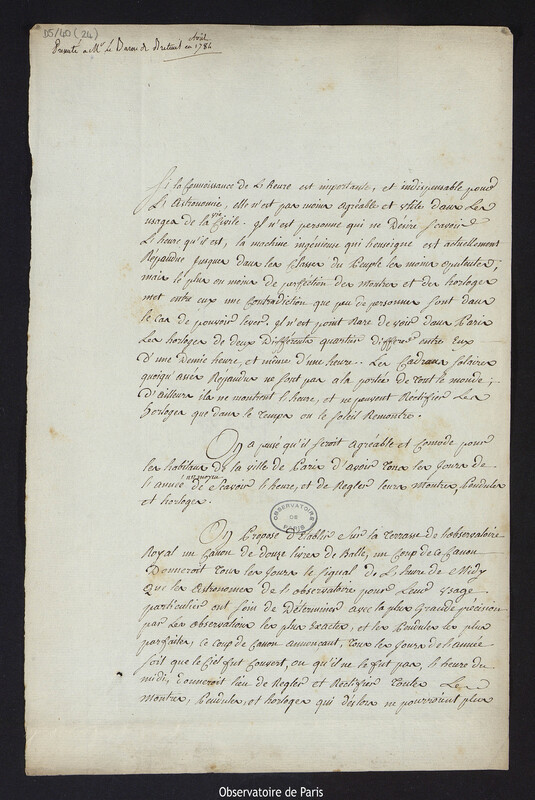 D5/40 (24)
Présenté a Mr. le Baron de Breteuil en Août 1784
Si la Connoissance de L'heure est importante, et indispensable pour
L'Astronomie, elle n'est pas moins Agréable et Utile dans Les
usages de la Vie Civile. Il n'est personne qui ne Désire Scavoir
L'heure qu'il est, la machine ingénieuse qui l'enseigne est actuellement
Répandue jusque dans les Classes du Peuple les moins opulentes;
mais le plus ou moins de perfection des Montres et des horloges
met entre eux une Contradiction que peu de personnes sont dans
le Cas de pouvoir lever. Il n'est point Rare de voir dans Paris
Les horloges de deux Differents quartiers differer entre Eux
D'une Demie heure, et même d'une heure. Les Cadrans Solaires
quoiqu'assés Répandus ne sont pas a la portée de Tout le monde;
D'ailleurs ils ne montrent l'heure, et ne peuvent Rectifier Les
horloges que dans le Temps où le Soleil se montre.
On a pensé qu'il seroit Agréable et Comode pour
les habitans de la ville de Paris d'avoir Tous les Jours de
l'année un moyen de Scavoir l'heure, et de Regler leurs Montres, Pendules
et horloges.
OBSERVATOIRE DE PARIS
On Propose d'Etablir Sur la Terrasse de l'observatoire
Royal un Canon de douze livres de Balle, un Coup de ce Canon
Donneroit Tous les Jours le Signal de L'heure de Midy
Que les Astronomes de l'observatoire pour Leur Usage
particulier ont soin de Déterminer avec la plus Grande précision
par Les observations les plus Exactes, et les Pendules les plus
parfaites, ce Coup de Canon annonçant, Tous les Jours de l'année
soit que le Ciel fut Couvert, ou qu'il ne le fut pas, l'heure du
midi, donneroit lieu de Regler et Rectifier Toutes Les
Montres, Pendules, et horloges qui déslors ne pourroient plus
Observatoire de Paris